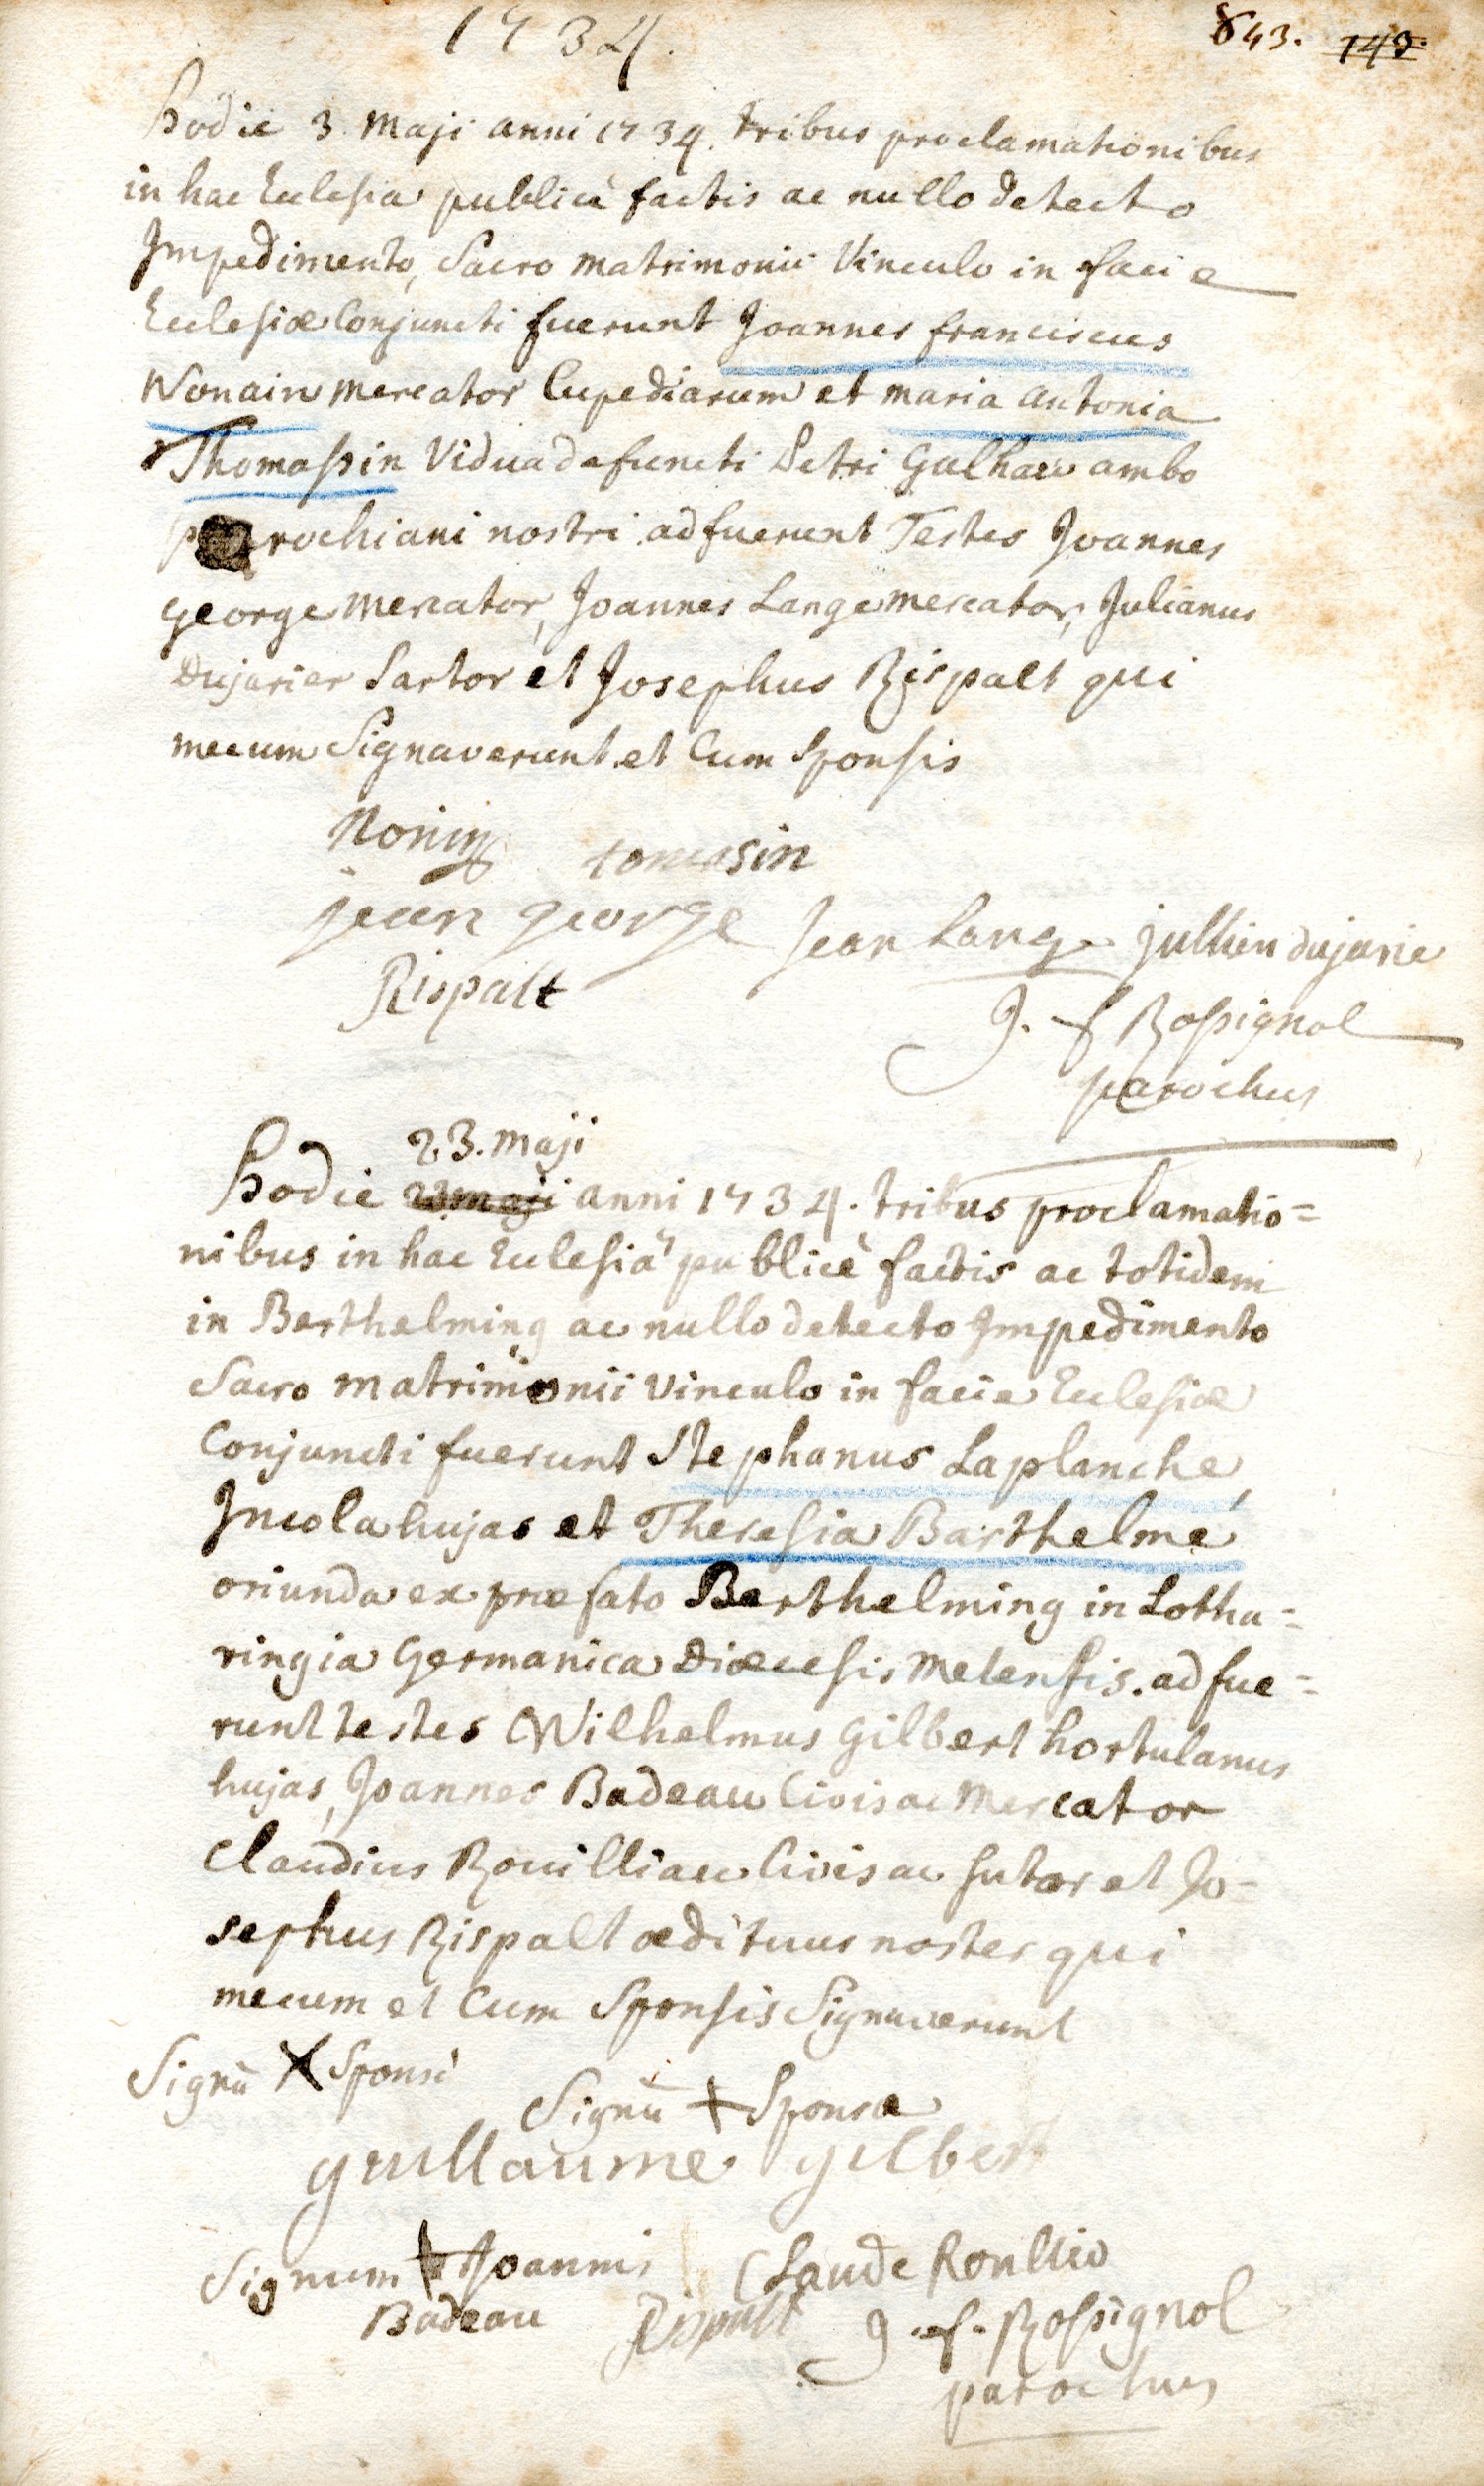 1734.
843. 143.
hodie 3. Maji anni 1734. tribus proclamationibus
in hac Ecclesia publicè factis ac nullo detecto
Impedimento, Sacro Matrimonii Vinculo in facie
Ecclesiæ Conjuncti fuerunt Joannes franciscus
Nonain mercator Cupediarum et maria antonia
Thomassin Vidua defuncti Petri Gulhau ambo
parochiani nostri adfuerunt Testes Joannes
george mercator, Joannes Lange mercator, Julianus
Dujarier Sartor et Josephus Rispalt qui
mecum Signaverunt et Cum Sponsis
Nonin tomasin
jean george Jean Lange jullien dujarie
Rispalt
J. f Rossignol
parochus
23. Maji
hodie 23 maji anni 1734. tribus proclamatio=
nibus in hac Ecclesiâ publicè factis ac totidem
in Berthelming ac nullo detecto Impedimento
Sacro Matrimonii Vinculo in facie Ecclesiæ
Conjuncti fuerunt Stephanus Laplanche,
Incola hujas et Theresia Barthelme
oriunda ex præfato Berthelming in Lotha=
ringia Germanica Diœcesis Metensis. adfue=
runt testes Wilhelmus Gilbert hortulanus
hujas, Joannes Badeau Civis ac Mercator
Claudius Rouilliau Civis ac sutor et Jo=
sephus Rispalt ædituus noster qui
mecum et Cum Sponsis Signaverunt
Signū X Sponsi
Signū + Sponsæ
guillaume gilbert
Signum + Joannis Claude Roullio
Badeau Rispalt J. f. Rossignol
parochus